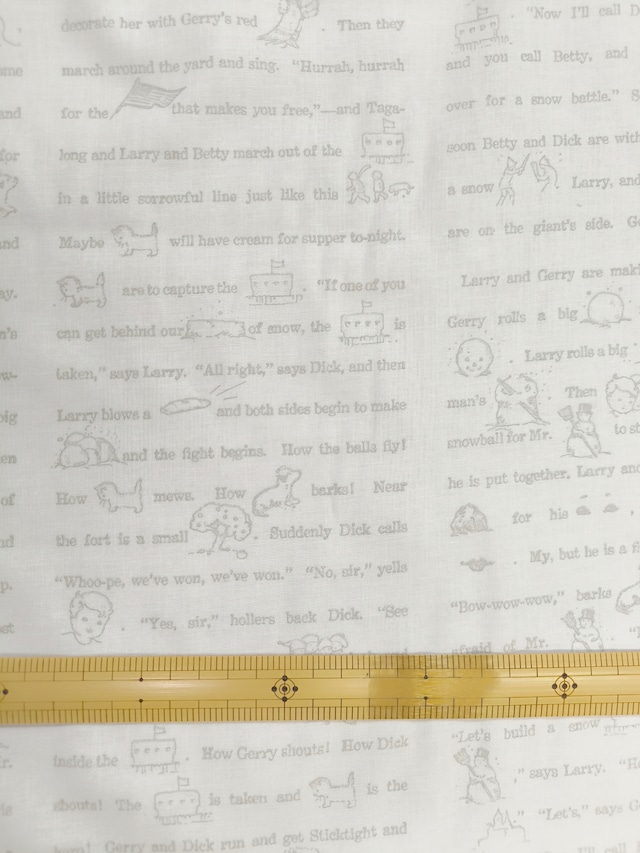 decorate her with Gerry's red . Then they
march around the yard and sing. "Hurrah, hurrah
for the that makes you free,"—and Taga-
long and Larry and Betty march out of the
in a little sorrowful line just like this
Maybe will have cream for supper to-night.
are to capture the . "If one of you
can get behind our of snow, the is
taken," says Larry. "All right," says Dick, and then
Larry blows a and both sides begin to make
and the fight begins. How the balls fly!
How mews. How barks! Near
the fort is a small . Suddenly Dick calls
"Whoo-pe, we've won, we've won." "No, sir," yells
. "Yes, sir," hollers back Dick. "See
inside the . How Gerry shouts! How Dick
shouts! The is taken and is the
Gerry and Dick run and get Sticktight and
. "Now I'll call
and you call Betty, and
over for a snow battle."
soon Betty and Dick are
a snow Larry, and
are on the giant's side.
Larry and Gerry are
Gerry rolls a big
. Larry rolls a big
man's . Then
snowball for Mr. to
he is put together. Larry
for his ,
. My, but he is a
"Bow-wow-wow," barks
afraid of Mr.
"Let's build a snow
," says Larry.
." "Let's," says
I'll call